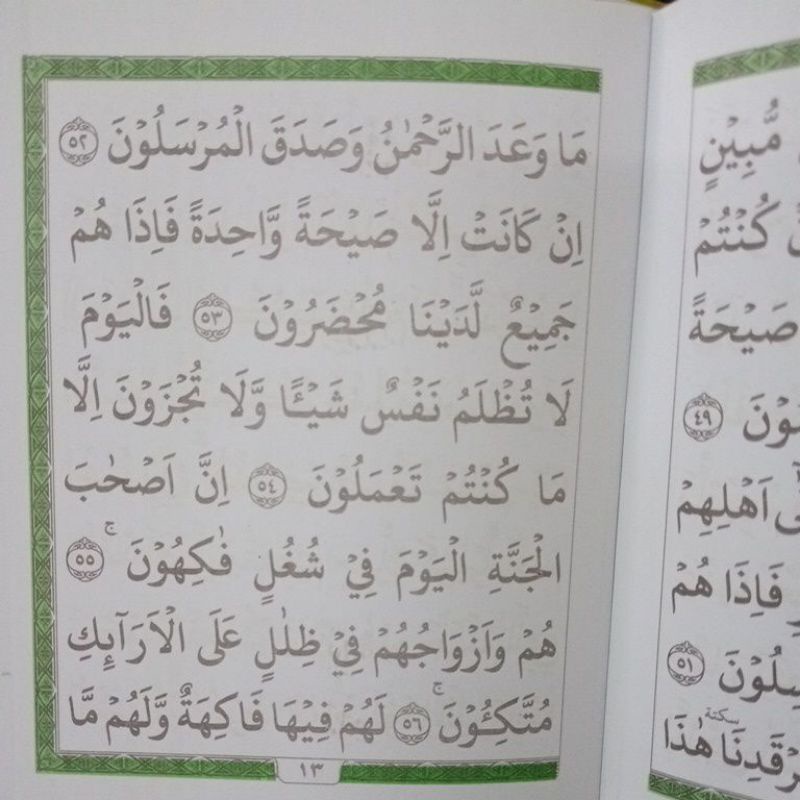 مَا وَعَدَ الرَّحْمٰنُ وَصَدَقَ الْمُرْسَلُوْنَ ۝٥٢
اِنْ كَانَتْ اِلَّا صَيْحَةً وَّاحِدَةً فَاِذَا هُمْ
جَمِيْعٌ لَّدَيْنَا مُحْضَرُوْنَ ۝٥٣ فَالْيَوْمَ
لَا تُظْلَمُ نَفْسٌ شَيْـًٔا وَّلَا تُجْزَوْنَ اِلَّا
مَا كُنْتُمْ تَعْمَلُوْنَ ۝٥٤ اِنَّ اَصْحٰبَ
الْجَنَّةِ الْيَوْمَ فِيْ شُغُلٍ فٰكِهُوْنَ ۚ ۝٥٥
هُمْ وَاَزْوَاجُهُمْ فِيْ ظِلٰلٍ عَلَى الْاَرَاۤىِٕكِ
مُتَّكِـُٔوْنَ ۚ ۝٥٦ لَهُمْ فِيْهَا فَاكِهَةٌ وَّلَهُمْ مَّا
١٣
مُّبِيْنٍ
كُنْتُمْ
صَيْحَةً
۝٤٩
اَهْلِهِمْ
فَاِذَا هُمْ
۝٥١
سكتة
هٰذَا